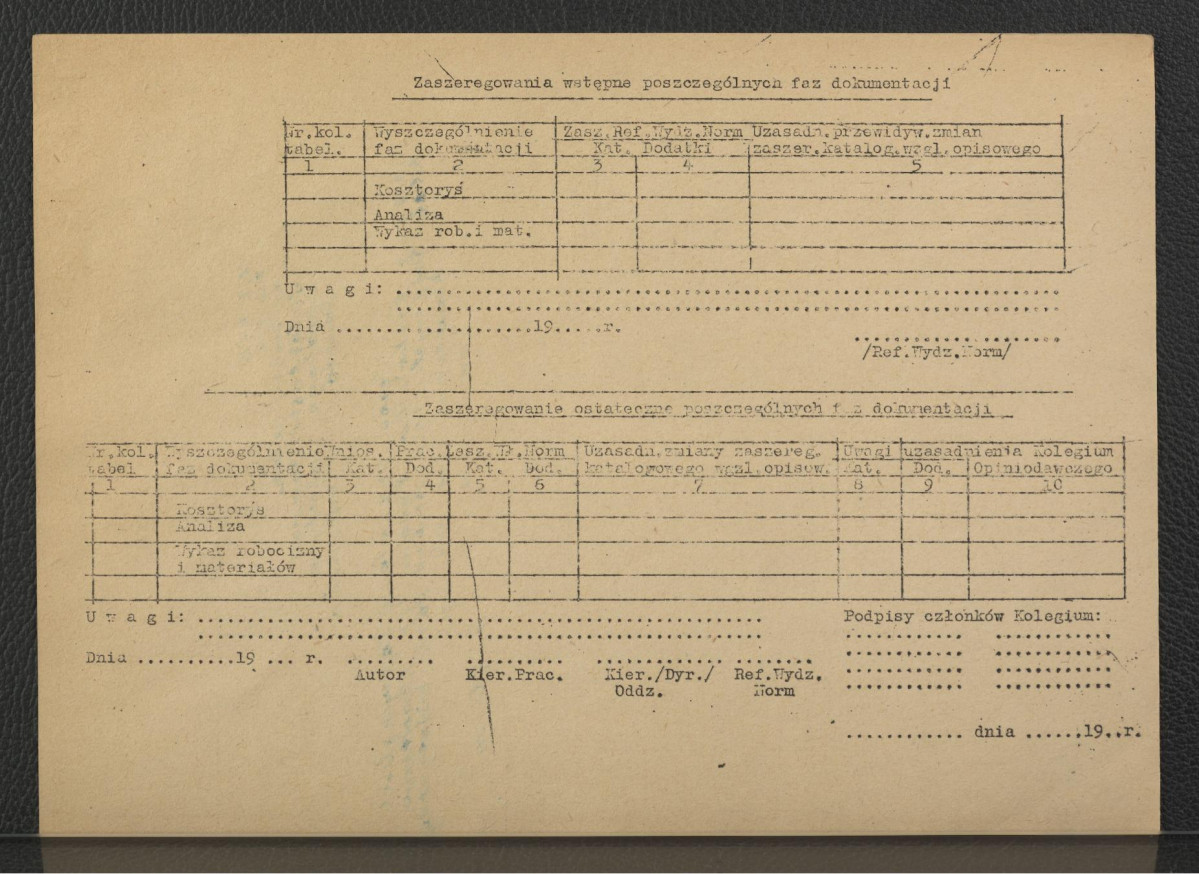 Zaszeregowania wstępne poszczególnych faz dokumentacji
Nr.kol. Wyszczególnienie Zasz.Ref.Wydz.Norm Uzasadn.przewidyw.zmian
tabel. faz dokumentacji Kat. Dodatki zaszer.katalog.wzgl.opisowego
1 2 3 4 5
Kosztorys
Analiza
Wykaz rob.i mat.
U w a g i: ..............................................................
..............................................................
Dnia ......................19.....r.
......................
/Ref.Wydz.Norm/
Zaszeregowanie ostateczne poszczególnych faz dokumentacji
Nr.kol. Wyszczególnienie Wnios. Prac. Zasz.Wł.Norm Uzasadn.zmiany zaszereg. Uwagi uzasadnienia Kolegium
tabel faz dokumentacji Kat. Dod. Kat. Dod. katalogowego wzgl.opisow. Kat. Dod. Opiniodawczego
1 2 3 4 5 6 7 8 9 10
Kosztorys
Analiza
Wykaz robocizny
i materiałów
U w a g i: .................................................... Podpisy członków Kolegium:
.................................................... ............ ............
Dnia ..........19 ... r. ......... .......... ............. ........ ............ ............
Autor Kier.Prac. Kier./Dyr./ Ref.Wydz. ............ ............
Oddz. Norm ............ ............
............ dnia ......19..r.